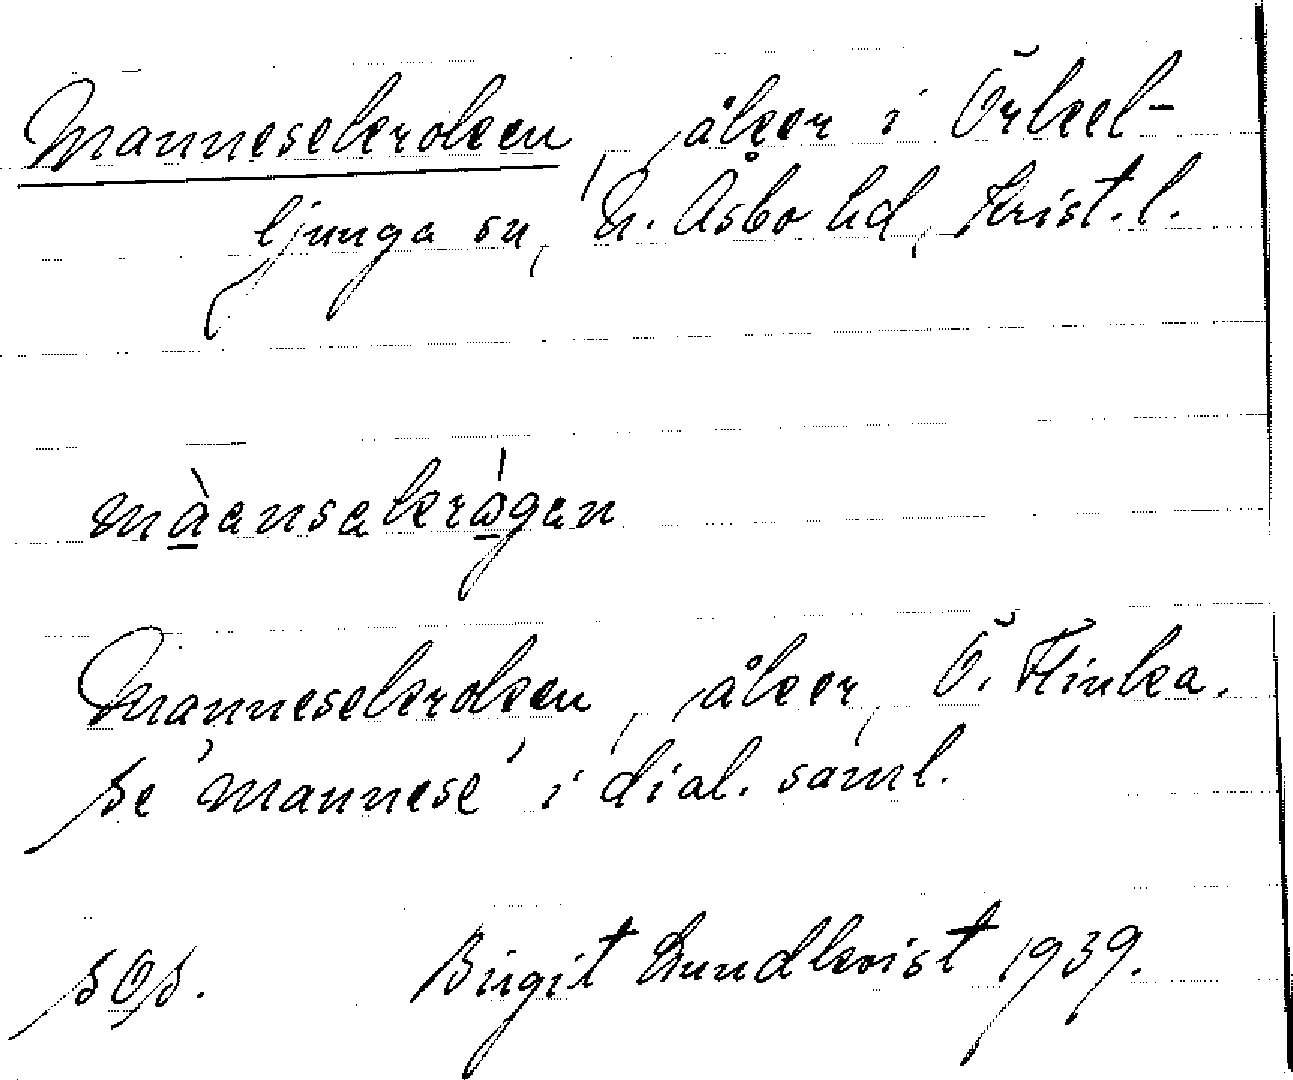 Mannesekroken, åker i Örkel-
ljunga sn, N. Åsbo hd, Krist. l.
màansakrågan
Mannesekroken, åker, Ö. Flinka.
Se 'mannese' i dial. saml.
sOs. Birgit Lundkvist 1939.